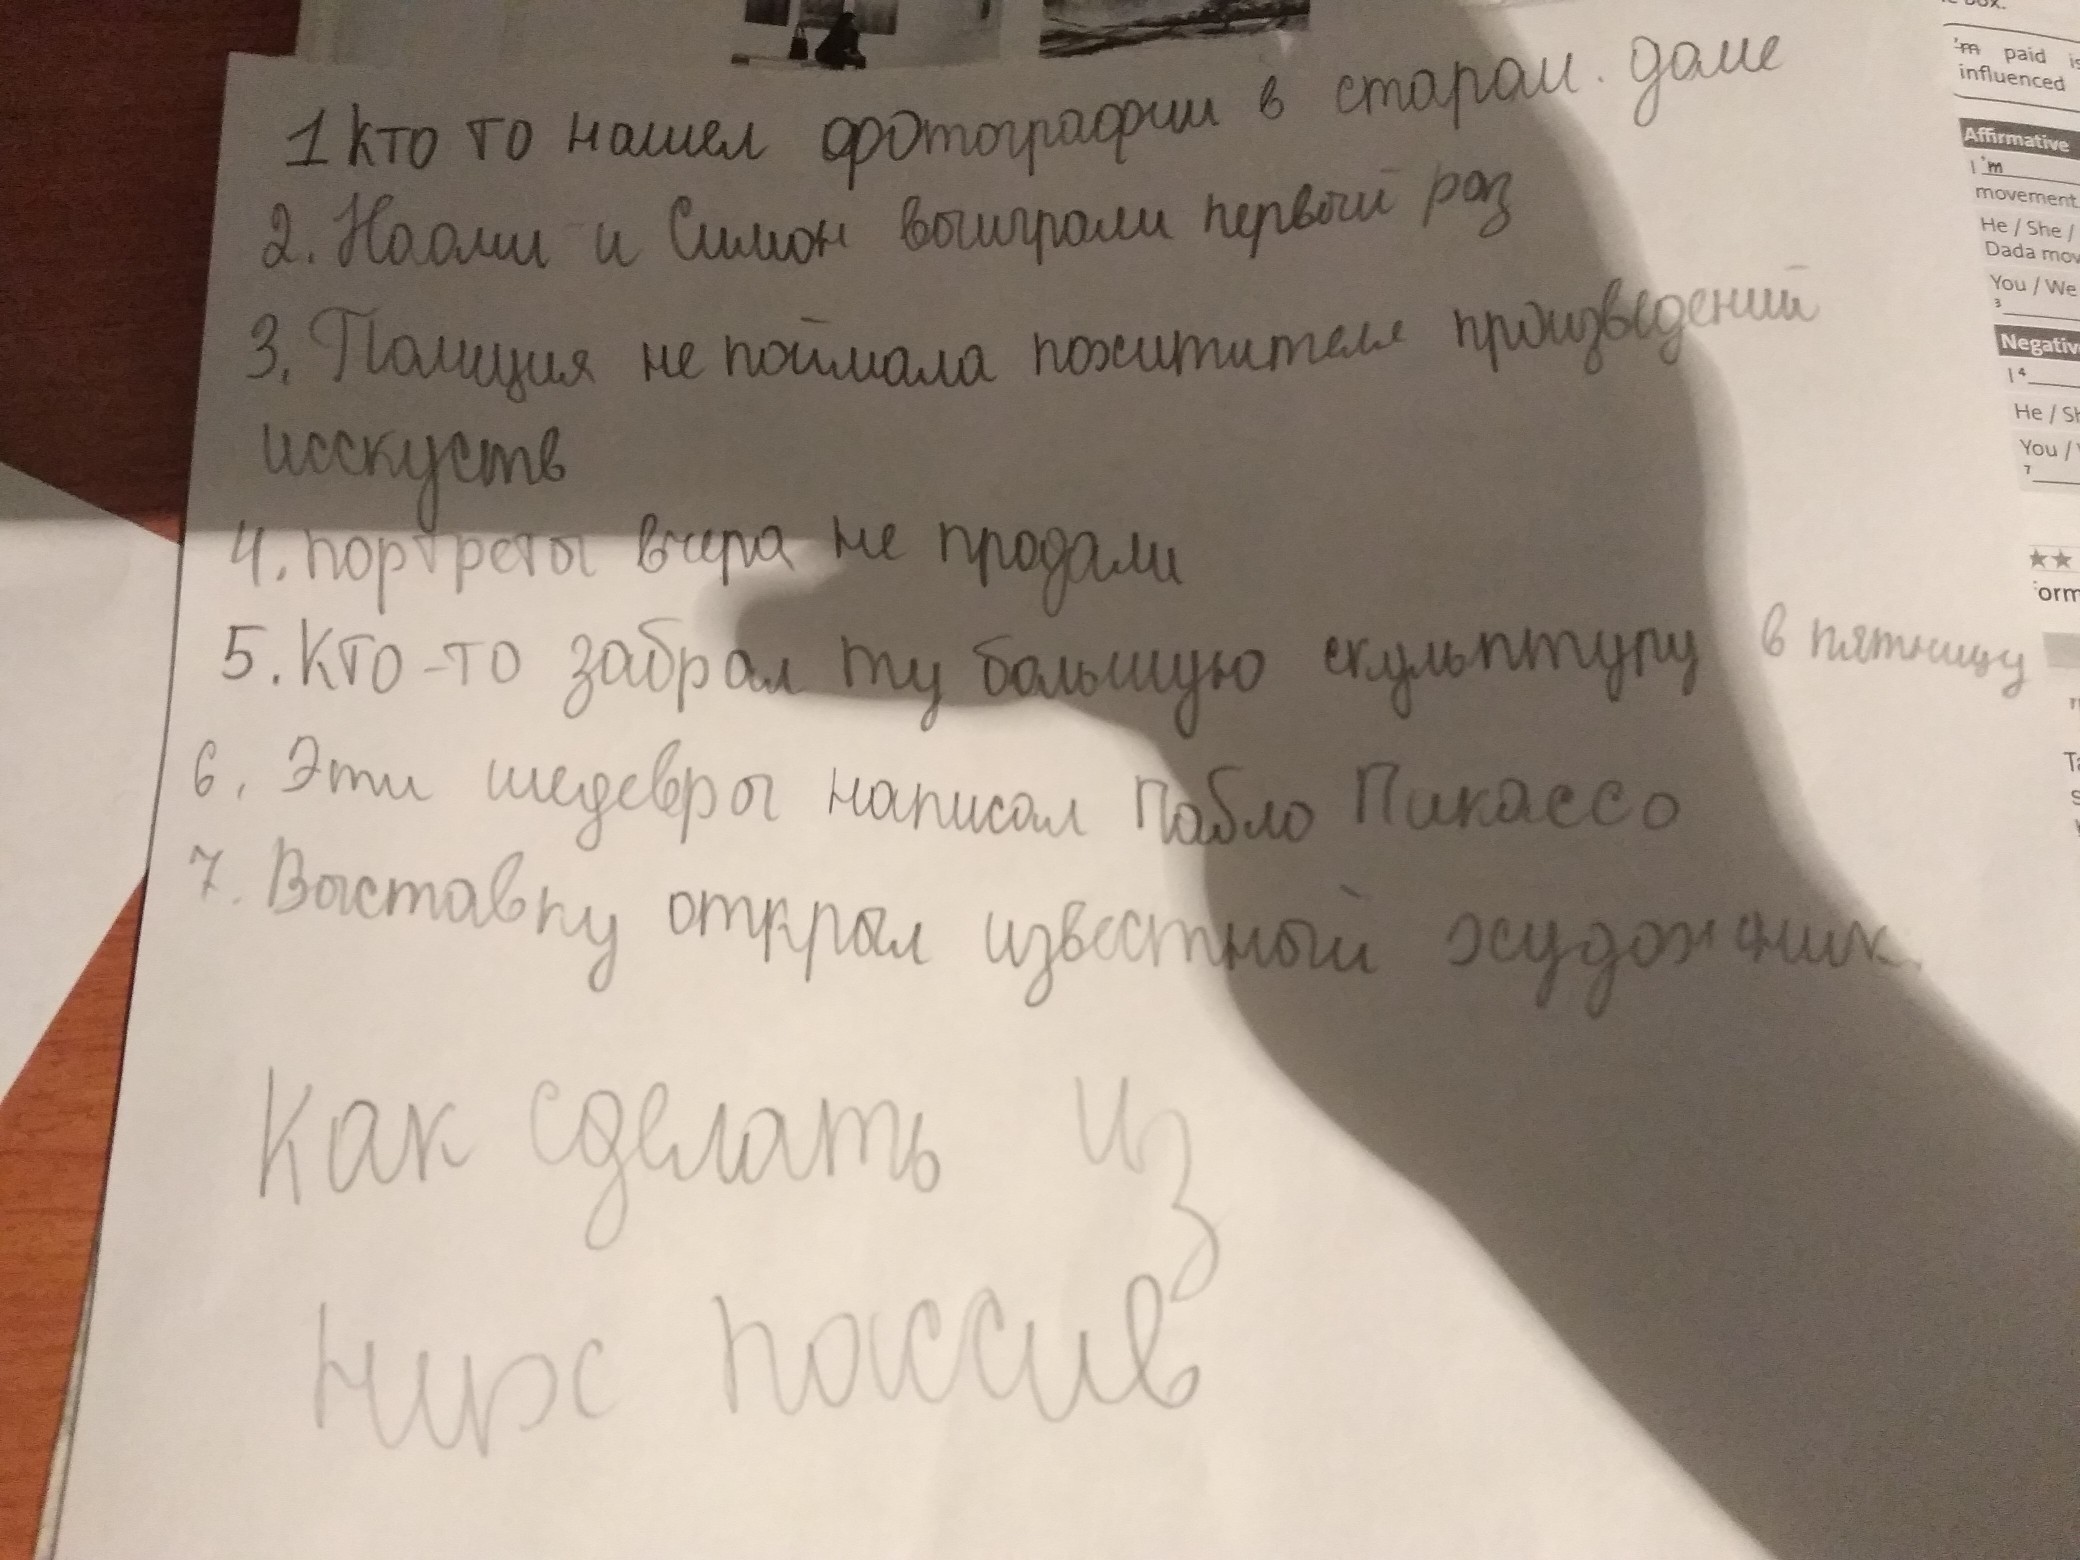 1 Кто то нашел фотографии в старом. доме
2. Наоми и Симон выиграли первый раз
3. Полиция не поймала похитителя произведений
исскуств
4. портреты вчера не продали
5. Кто-то забрал ту большую скульптуру в пятницу
6. Эти шедевры написал Пабло Пикассо
7. Выставку открыл известный художник.
Как сделать из
них пассив
'm paid
influenced
Affirmative
I 'm
movement
He / She /
Dada
You / We
3
I 4
He /
You /
7
★★